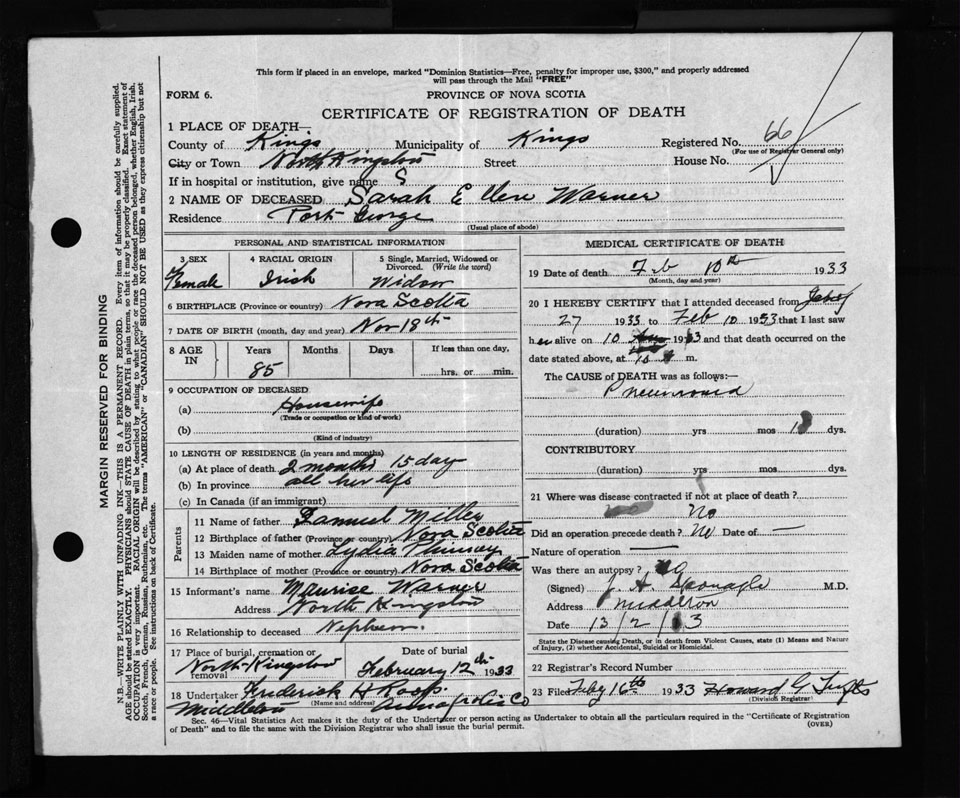 This form if placed in an envelope, marked "Dominion Statistics—Free, penalty for improper use, $300," and properly addressed
will pass through the Mail "FREE"
FORM 6.
PROVINCE OF NOVA SCOTIA
CERTIFICATE OF REGISTRATION OF DEATH
1 PLACE OF DEATH—
County of Kings Municipality of Kings Registered No. 66
(For use of Registrar General only)
City or Town North Kingston Street House No.
If in hospital or institution, give name
2 NAME OF DECEASED Sarah Ellen Warner
Residence Port George
(Usual place of abode)
PERSONAL AND STATISTICAL INFORMATION
3 SEX
Female
4 RACIAL ORIGIN
Irish
5 Single, Married, Widowed or
Divorced. (Write the word)
Widow
6 BIRTHPLACE (Province or country) Nova Scotia
7 DATE OF BIRTH (month, day and year) Nov 18th
8 AGE IN
Years Months Days If less than one day,
85 hrs. or min.
9 OCCUPATION OF DECEASED
(a) Housewife
(Trade or occupation or kind of work)
(b)
(Kind of industry)
10 LENGTH OF RESIDENCE (in years and months)
(a) At place of death 2 months 15 day
(b) In province all her life
(c) In Canada (if an immigrant)
Parents
11 Name of father Samuel Miller
12 Birthplace of father (Province or country) Nova Scotia
13 Maiden name of mother Lydia
14 Birthplace of mother (Province or country) Nova Scotia
15 Informant's name Maurise Warner
Address North Kingston
16 Relationship to deceased Nephew.
17 Place of burial, cremation or
removal North Kingston
Date of burial
February 12th 1933
18 Undertaker Frederick H Roop.
(Name and address)
Middleton Annapolis Co
MEDICAL CERTIFICATE OF DEATH
19 Date of death Feb 10th 1933
(Month, day and year)
20 I HEREBY CERTIFY that I attended deceased from
27 1933 to Feb 10 1933 that I last saw
her alive on 10 1933 and that death occurred on the
date stated above, at 10 m.
The CAUSE of DEATH was as follows:—
Pneumonia
(duration) yrs mos dys.
CONTRIBUTORY
(duration) yrs mos dys.
21 Where was disease contracted if not at place of death?
No
Did an operation precede death? No Date of —
Nature of operation —
Was there an autopsy?
(Signed) J. A. M.D.
Address Middleton
Date 13/2/33
State the Disease causing Death, or in death from Violent Causes, state (1) Means and Nature
of Injury, (2) whether Accidental, Suicidal or Homicidal.
22 Registrar's Record Number
23 Filed Feby 16th 1933 Howard G Tufts
(Division Registrar)
Sec. 46—Vital Statistics Act makes it the duty of the Undertaker or person acting as Undertaker to obtain all the particulars required in the "Certificate of Registration
of Death" and to file the same with the Division Registrar who shall issue the burial permit.
(OVER)
MARGIN RESERVED FOR BINDING
N.B.—WRITE PLAINLY WITH UNFADING INK—THIS IS A PERMANENT RECORD. Every item of information should be carefully supplied.
AGE should be stated EXACTLY. PHYSICIANS should STATE CAUSE OF DEATH in plain terms, so that it may be properly classified. Exact statement of
OCCUPATION is very important. RACIAL ORIGIN will be described by stating to what people or race the deceased person belonged, whether English, Irish,
Scotch, French, German, Russian, Ruthenian, etc. The terms "AMERICAN" or "CANADIAN" SHOULD NOT BE USED as they express citizenship but not
a race or people. See instructions on back of Certificate.